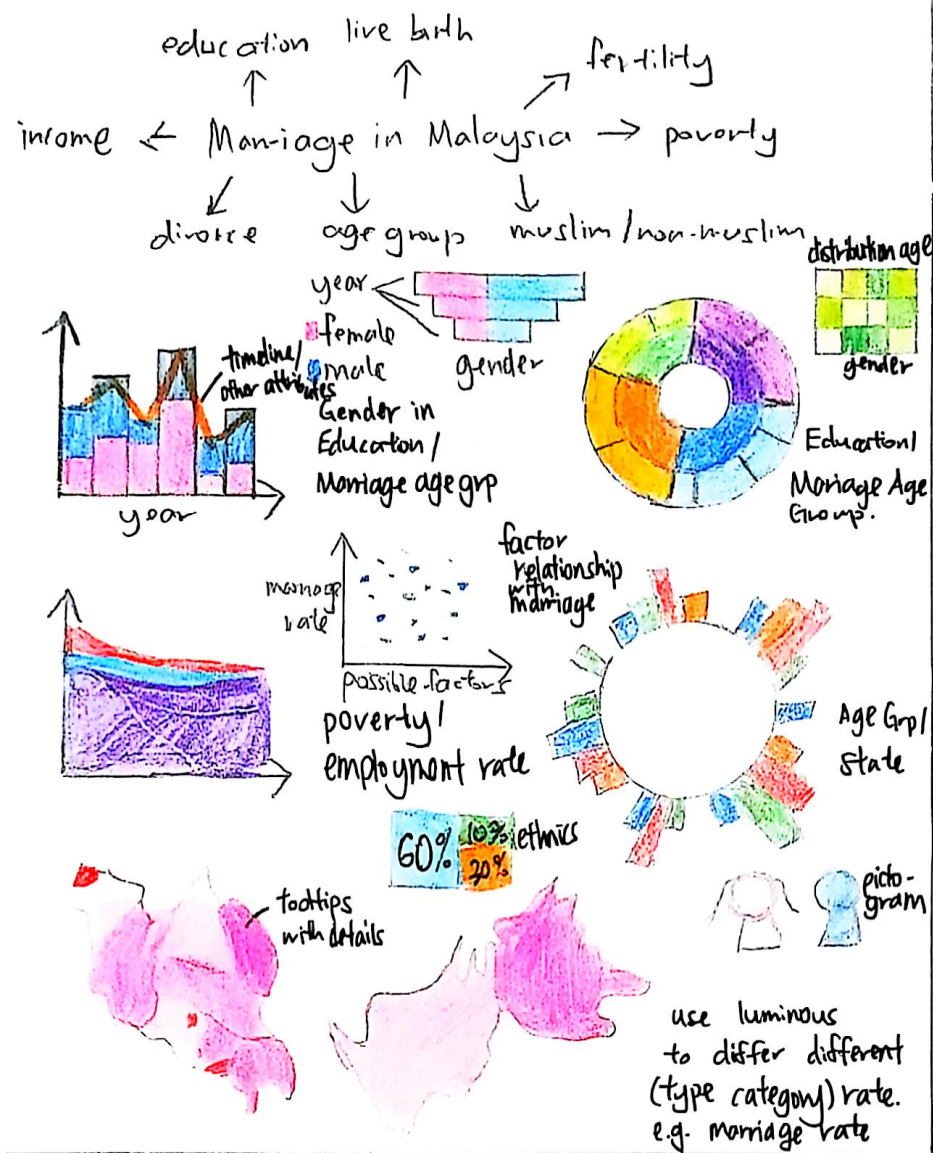 education
live birth
fertility
income
Marriage in Malaysia
poverty
divorce
age group
muslim/non-muslim
year
gender
distribution age
gender
female
male
timeline/
other attributes
Gender in
Education/
Marriage age grp
year
Education/
Marriage Age
Group.
marriage
rate
possible factors
factor
relationship
with
marriage
poverty/
employment rate
Age Grp/
State
60%
10%
30%
ethnics
tooltips
with details
picto-
gram
use luminous
to differ different
(type category) rate.
e.g. marriage rate